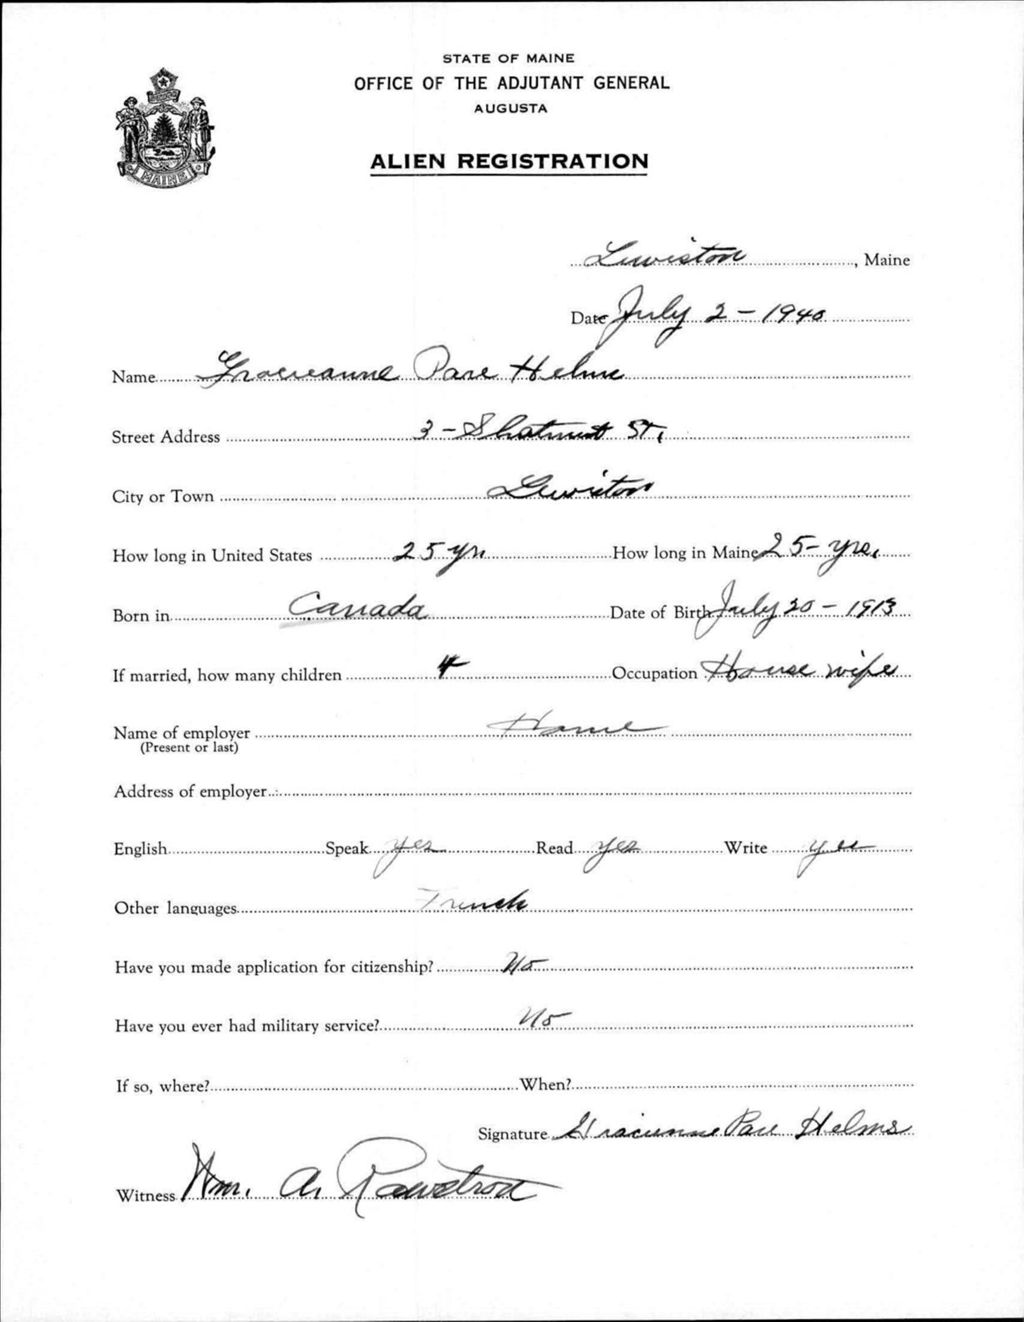 STATE OF MAINE
OFFICE OF THE ADJUTANT GENERAL
AUGUSTA
ALIEN REGISTRATION
MAINE
Lewiston, Maine
Date July 2 - 1940
Name Pare Helms
Street Address 3 - St.
City or Town Lewiston
How long in United States 25 yrs How long in Maine 25 - yrs.
Born in Canada Date of Birth July 20 - 1913
If married, how many children 4 Occupation House wife
Name of employer Home
(Present or last)
Address of employer
English Speak yes Read yes Write yes
Other languages French
Have you made application for citizenship? No
Have you ever had military service? No
If so, where? When?
Signature Gracienne Pare Helms
Witness Wm. A. Rawstron